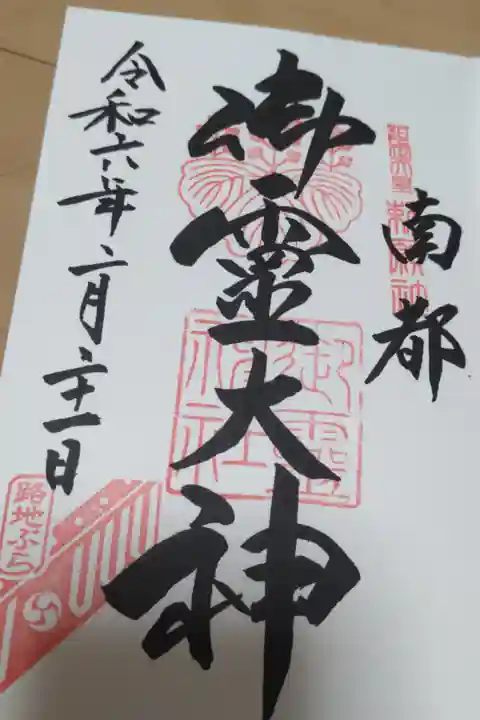 南都
御霊大神
令和六年二月二十一日
御霊
神社
路地ぶら